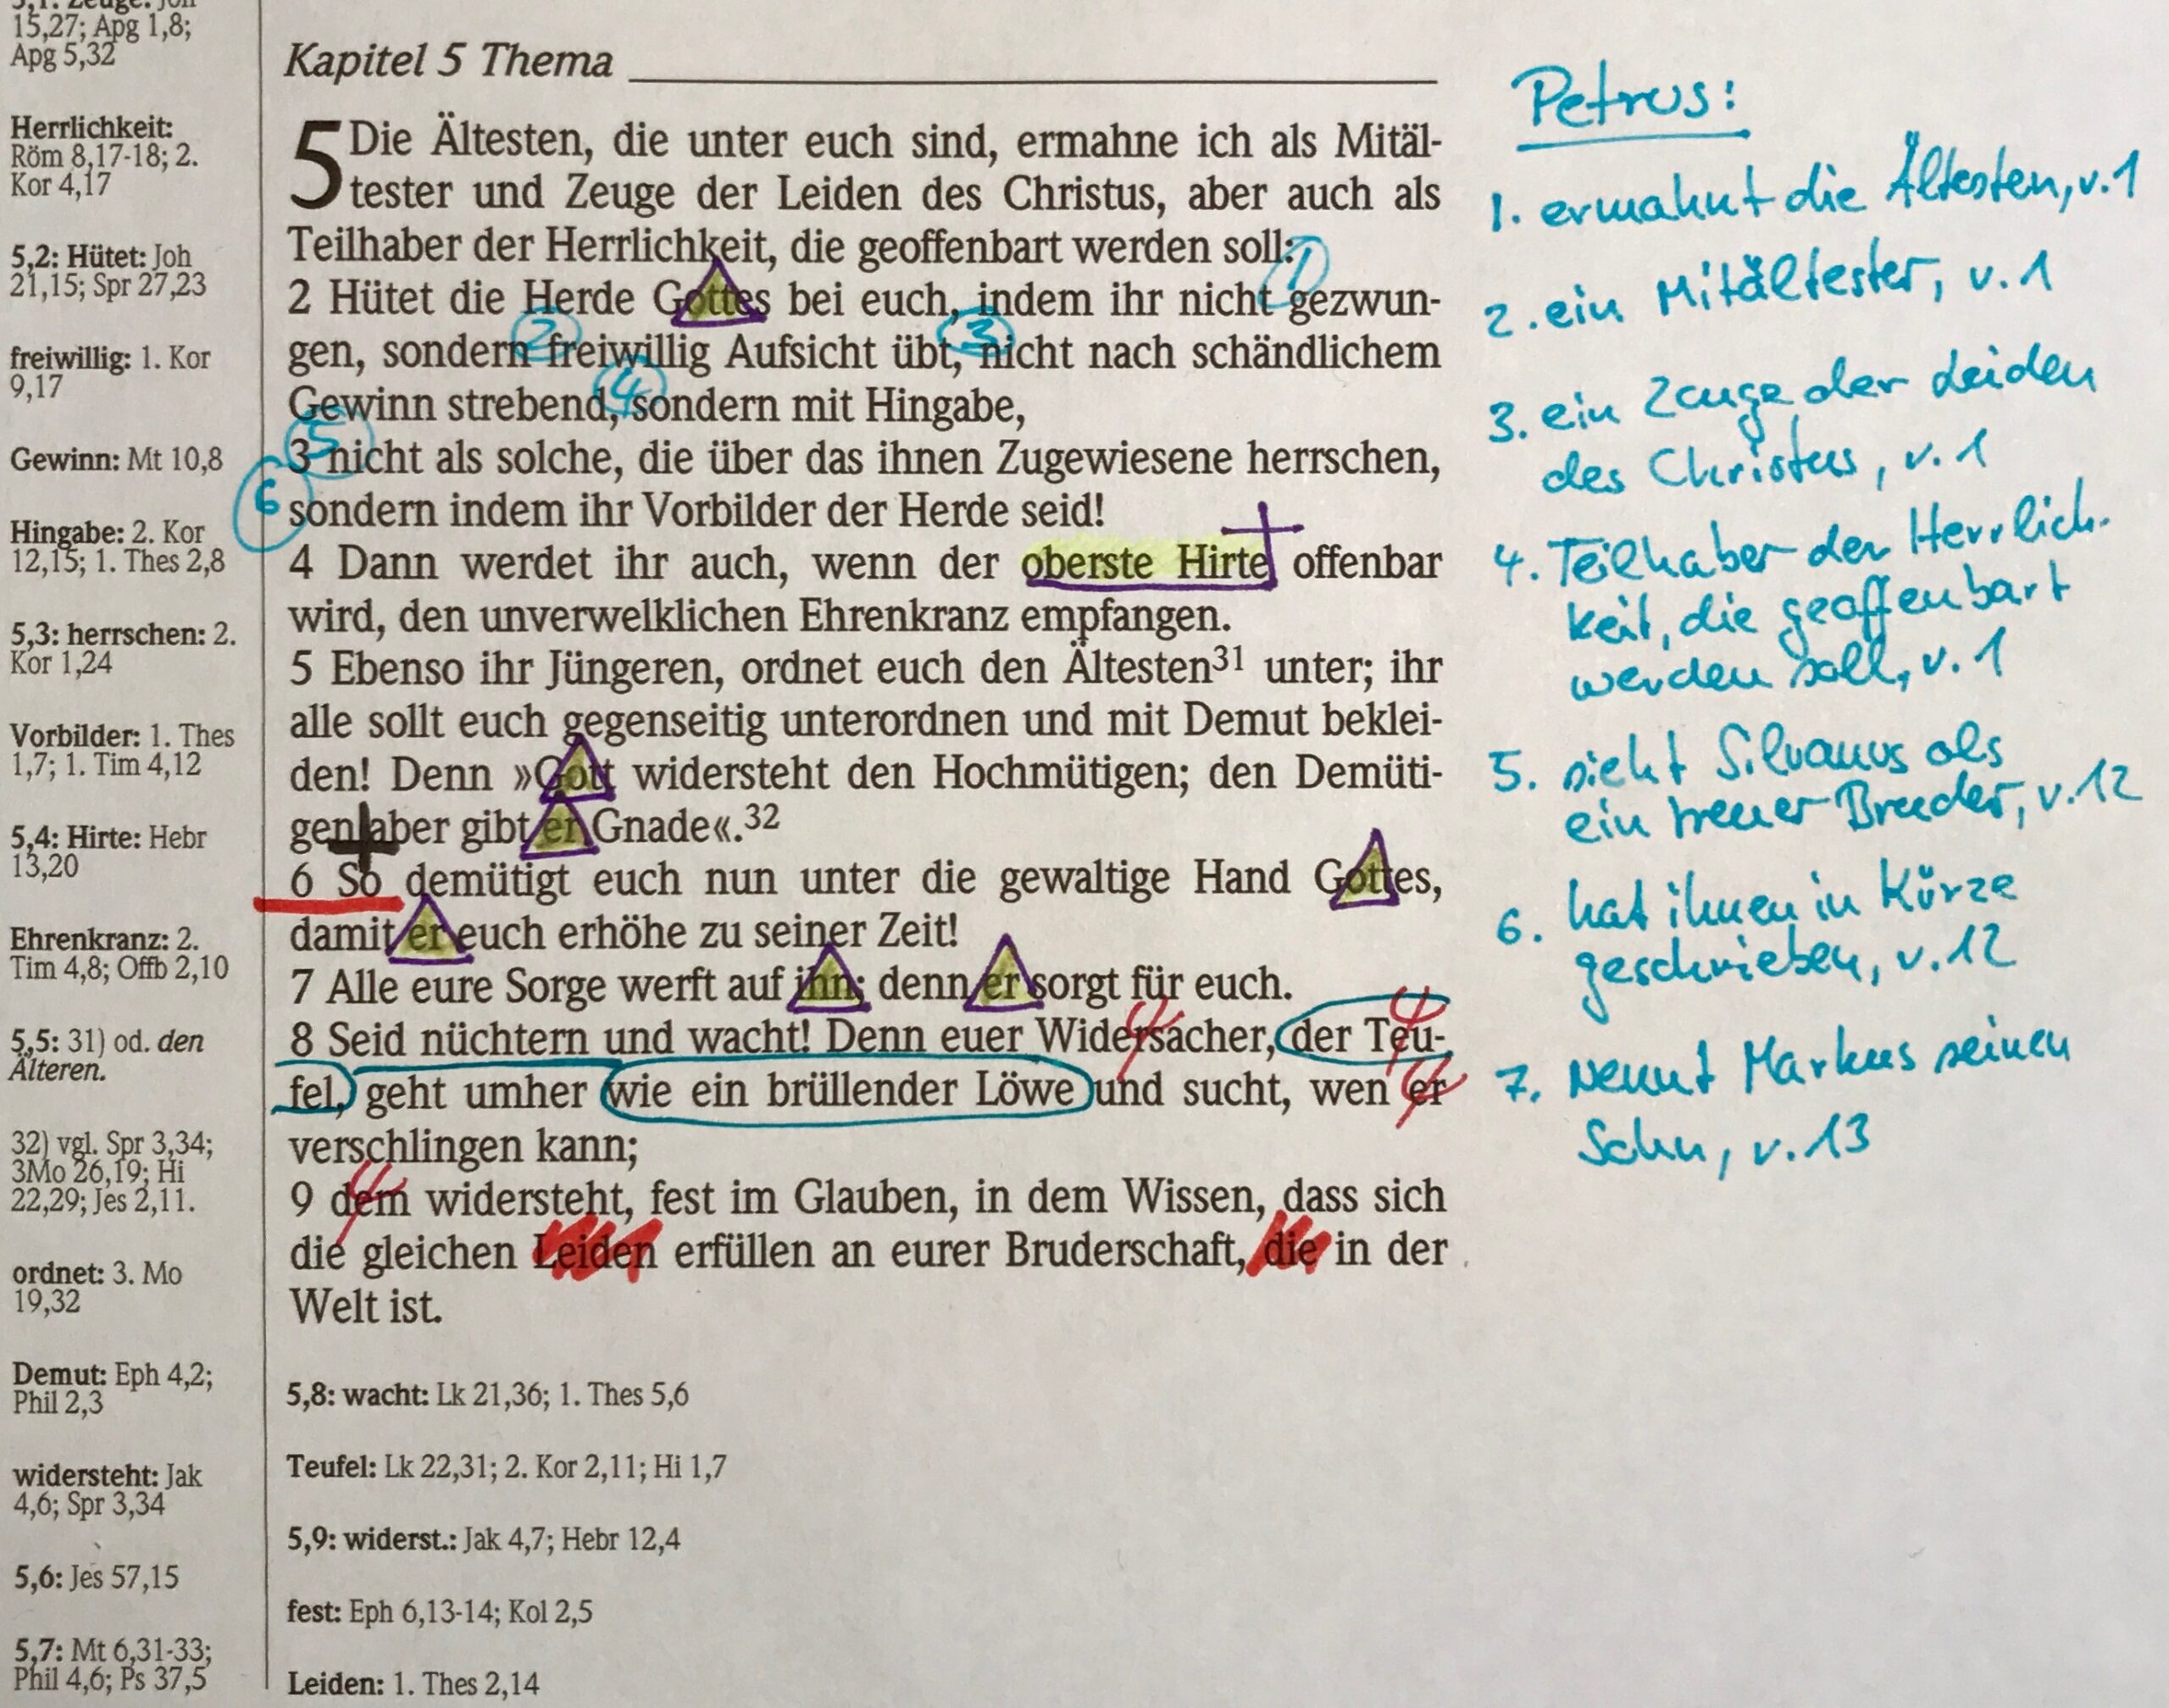 15,27; Apg 1,8;
Apg 5,32
Herrlichkeit:
Röm 8,17-18; 2.
Kor 4,17
5,2: Hütet: Joh
21,15; Spr 27,23
freiwillig: 1. Kor
9,17
Gewinn: Mt 10,8
Hingabe: 2. Kor
12,15; 1. Thes 2,8
5,3: herrschen: 2.
Kor 1,24
Vorbilder: 1. Thes
1,7; 1. Tim 4,12
5,4: Hirte: Hebr
13,20
Ehrenkranz: 2.
Tim 4,8; Offb 2,10
5,5: 31) od. den
Älteren.
32) vgl. Spr 3,34;
3Mo 26,19; Hi
22,29; Jes 2,11.
ordnet: 3. Mo
19,32
Demut: Eph 4,2;
Phil 2,3
widersteht: Jak
4,6; Spr 3,34
5,6: Jes 57,15
5,7: Mt 6,31-33;
Phil 4,6; Ps 37,5
Kapitel 5 Thema
5 Die Ältesten, die unter euch sind, ermahne ich als Mitäl-
tester und Zeuge der Leiden des Christus, aber auch als
Teilhaber der Herrlichkeit, die geoffenbart werden soll:
1
2 Hütet die Herde Gottes bei euch, indem ihr nicht gezwun-
2 3
gen, sondern freiwillig Aufsicht übt, nicht nach schändlichem
4
Gewinn strebend, sondern mit Hingabe,
5
3 nicht als solche, die über das ihnen Zugewiesene herrschen,
6
sondern indem ihr Vorbilder der Herde seid!
4 Dann werdet ihr auch, wenn der oberste Hirte offenbar
wird, den unverwelklichen Ehrenkranz empfangen.
5 Ebenso ihr Jüngeren, ordnet euch den Ältesten31 unter; ihr
alle sollt euch gegenseitig unterordnen und mit Demut beklei-
den! Denn »Gott widersteht den Hochmütigen; den Demüti-
gen aber gibt er Gnade«.32
6 So demütigt euch nun unter die gewaltige Hand Gottes,
damit er euch erhöhe zu seiner Zeit!
7 Alle eure Sorge werft auf ihn; denn er sorgt für euch.
8 Seid nüchtern und wacht! Denn euer Widersacher, der Teu-
fel, geht umher wie ein brüllender Löwe und sucht, wen er
verschlingen kann;
9 dem widersteht, fest im Glauben, in dem Wissen, dass sich
die gleichen Leiden erfüllen an eurer Bruderschaft, die in der
Welt ist.
5,8: wacht: Lk 21,36; 1. Thes 5,6
Teufel: Lk 22,31; 2. Kor 2,11; Hi 1,7
5,9: widerst.: Jak 4,7; Hebr 12,4
fest: Eph 6,13-14; Kol 2,5
Leiden: 1. Thes 2,14
Petrus:
1. ermahnt die Ältesten, v.1
2. ein Mitältester, v.1
3. ein Zeuge der Leiden
des Christus, v.1
4. Teilhaber der Herrlich-
keit, die geoffenbart
werden soll, v.1
5. sieht Silvanus als
ein treuer Bruder, v.12
6. hat ihnen in Kürze
geschrieben, v.12
7. Nennt Markus seinen
Sohn, v.13